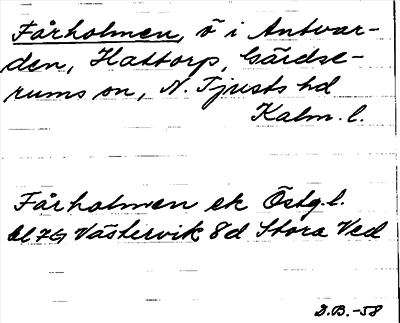 Fårholmen, ö i Antvar-
den, Hattorp, Gärdse-
rums sn, N. Tjusts hd
Kalm. l.
Fårholmen ek Östg. l.
bl 7G Västervik 8d Stora Ved
D.B.-58